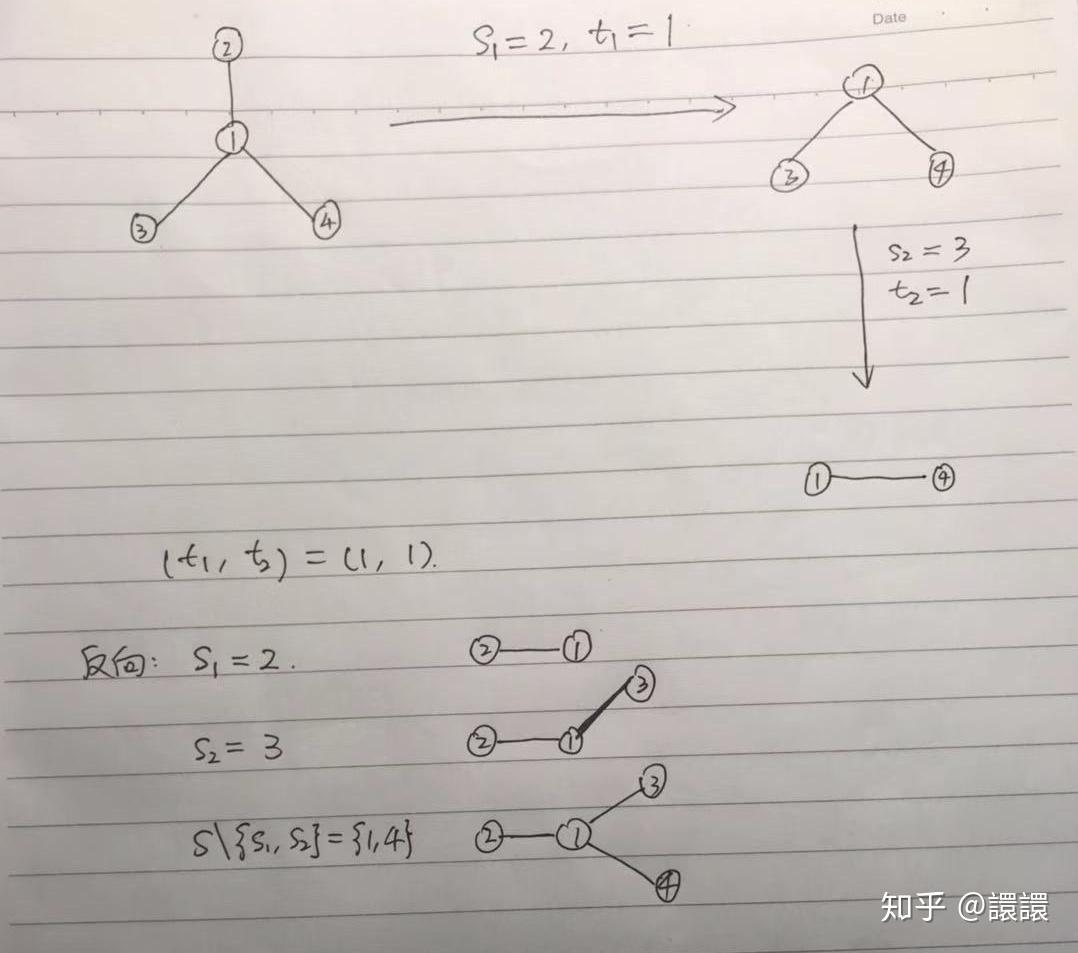 Date
S₁ = 2, t₁ = 1.
2
1
3
4
1
3
4
s₂ = 3
t₂ = 1
1
4
(t₁, t₂) = (1, 1).
反向: S₁ = 2.
2
1
s₂ = 3
3
2
1
S\{s₁, s₂} = {1,4}
3
2
1
4
知乎 @譞譞